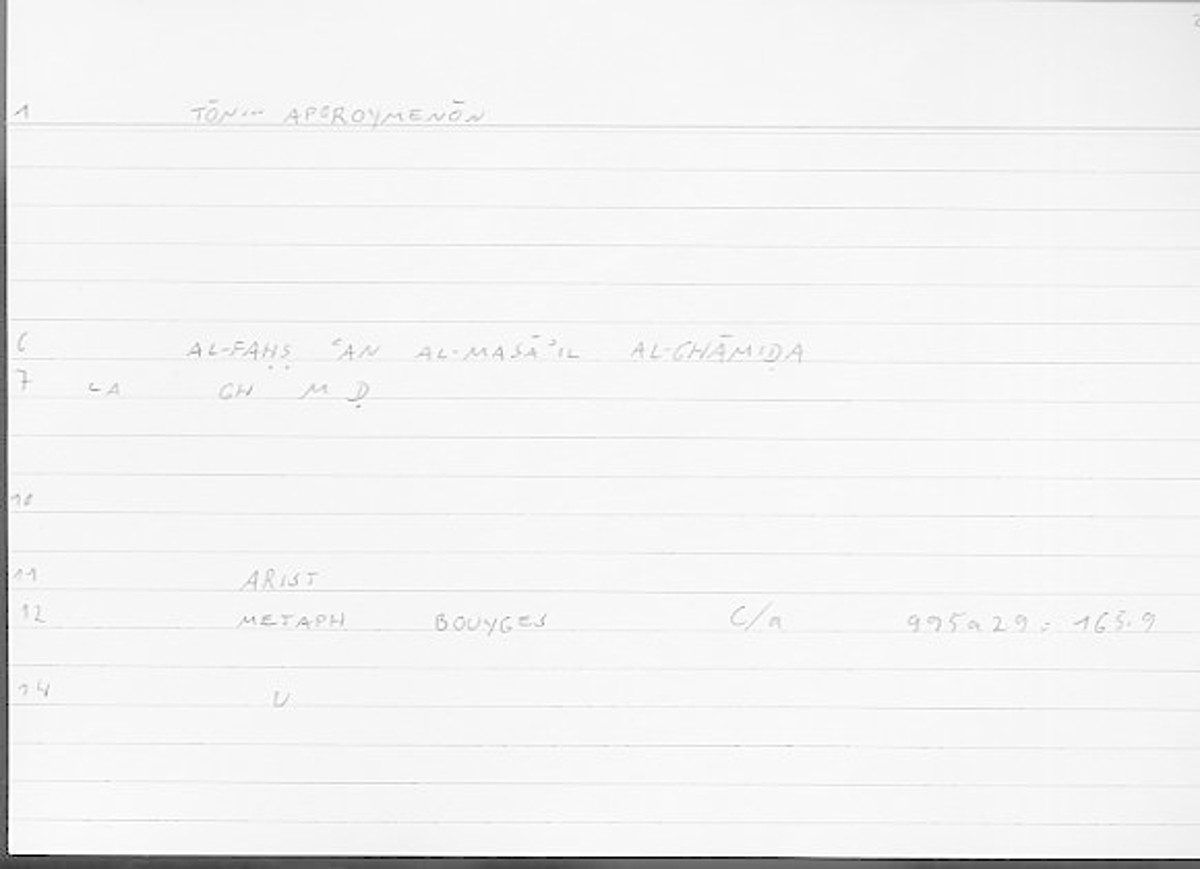 2
1 TŌN... APOROYMENŌN
6 AL-FAḤṢ ʿAN AL-MASĀʾIL AL-GHĀMIḌA
7 LA GH M Ḍ
10
11 ARIST
12 METAPH BOUYGES C/a 995a29: 165.9
14 U